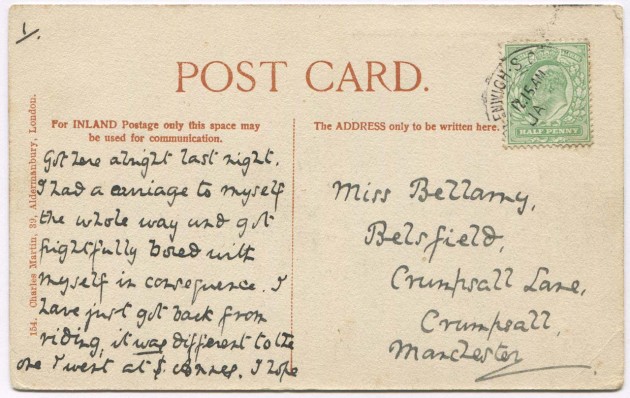 1/.
POST CARD.
For INLAND Postage only this space may
be used for communication.
The ADDRESS only to be written here.
154. Charles Martin, 39, Aldermanbury, London.
12.15 AM
JA
HALF PENNY
Got here alright last night.
I had a carriage to myself
the whole way and got
frightfully bored with
myself in consequence. I
have just got back from
riding, it was different to the
one I went at S. I hope
Miss Bellamy,
Belsfield,
Crumpsall Lane,
Crumpsall,
Manchester